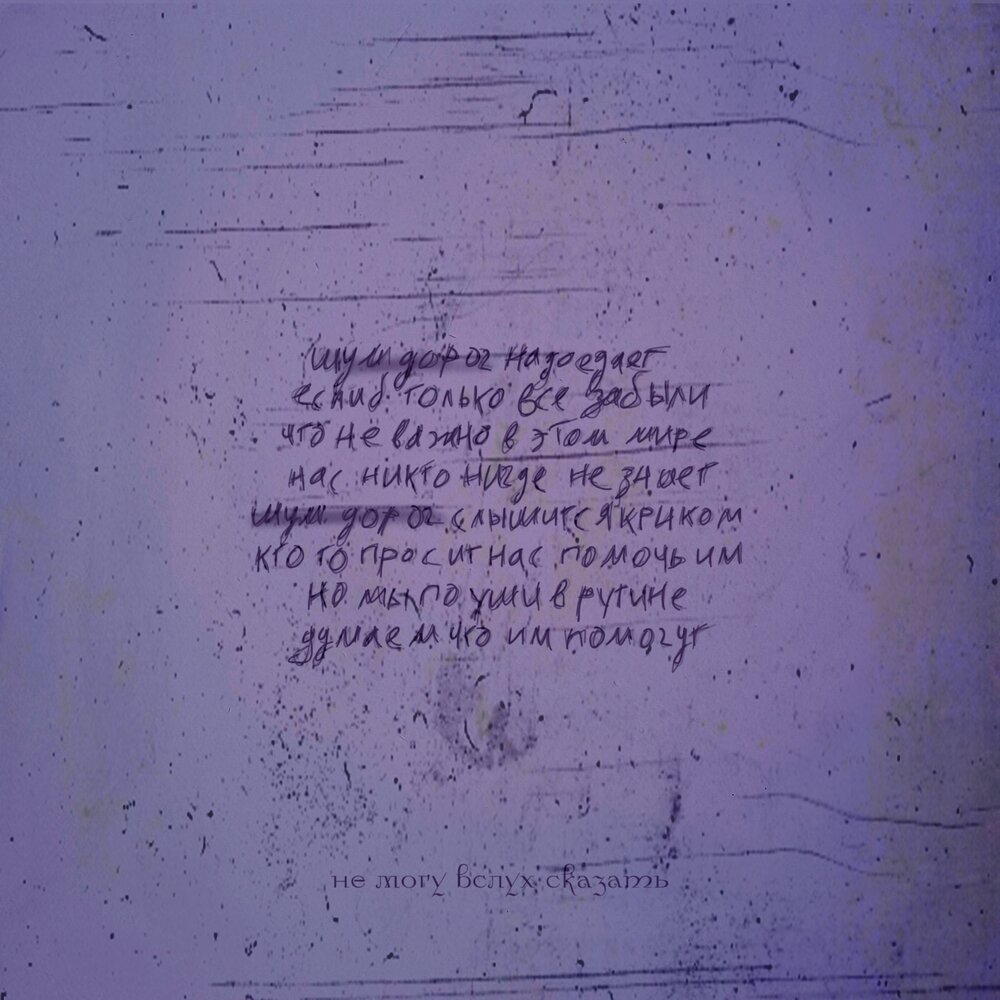 шум дорог надоедает
еслиб только все забыли
что не важно в этом мире
нас никто нигде не знает
шум дорог слышится криком
кто то просит нас помочь им
но мы по уши в рутине
думаем что им помогут
не могу вслух сказать